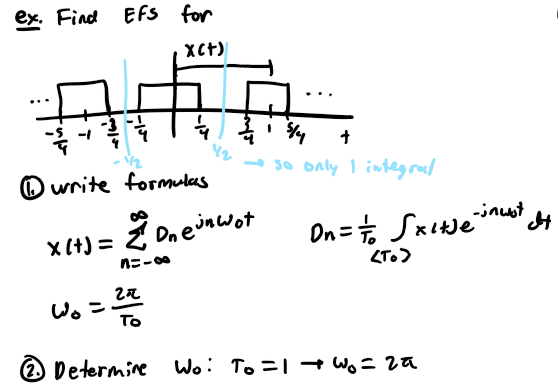 ex. Find EFS for
x(t)
... ...
-5/4 -1 -3/4 -1/4 1/4 3/4 1 5/4 t
-1/2 1/2 → so only 1 integral
① write formulas
x(t) = ∞ Σ n=-∞ Dn e^jnω₀t Dn = 1/T₀ ∫<T₀> x(t)e^-jnω₀t dt
ω₀ = 2π/T₀
② Determine ω₀: T₀ = 1 → ω₀ = 2π